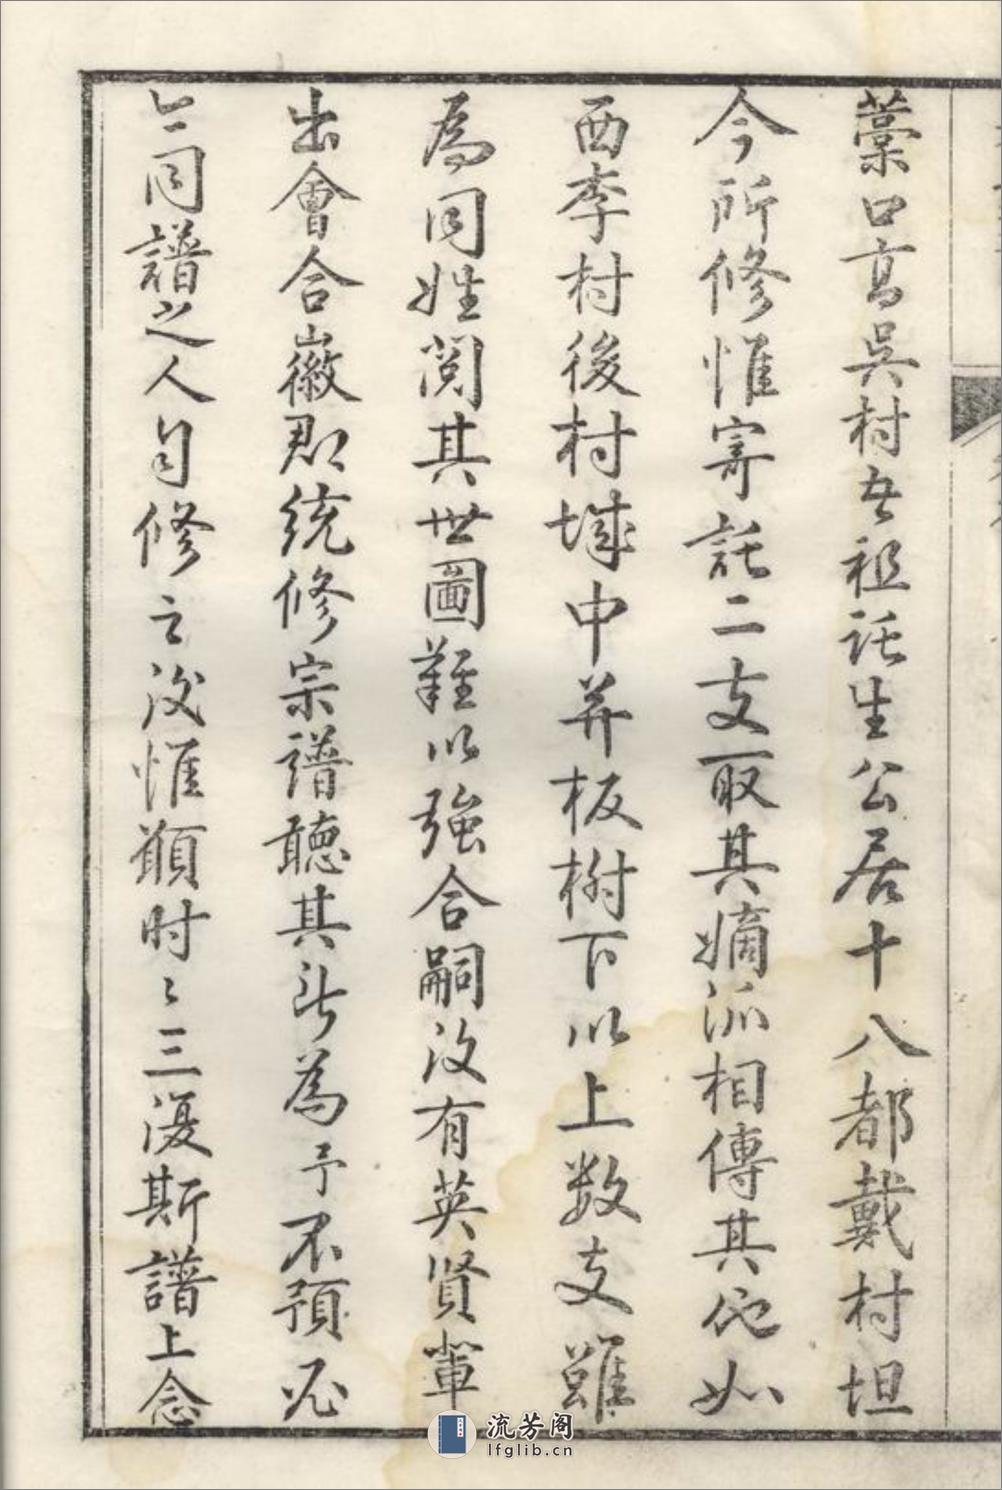 藁口高吳村安祖託生公居十八都戴村坦
今所修惟寄託二支取其嫡派相傳其他如
西李村後村城中并板樹下以上数支雖
為同姓閱其世圖難以強合嗣後有英賢輩
出會合徽郡統修宗譜聽其所為予不預必
也同譜之人自修之後惟願时〻三復斯譜上念
流芳阁
lfglib.cn